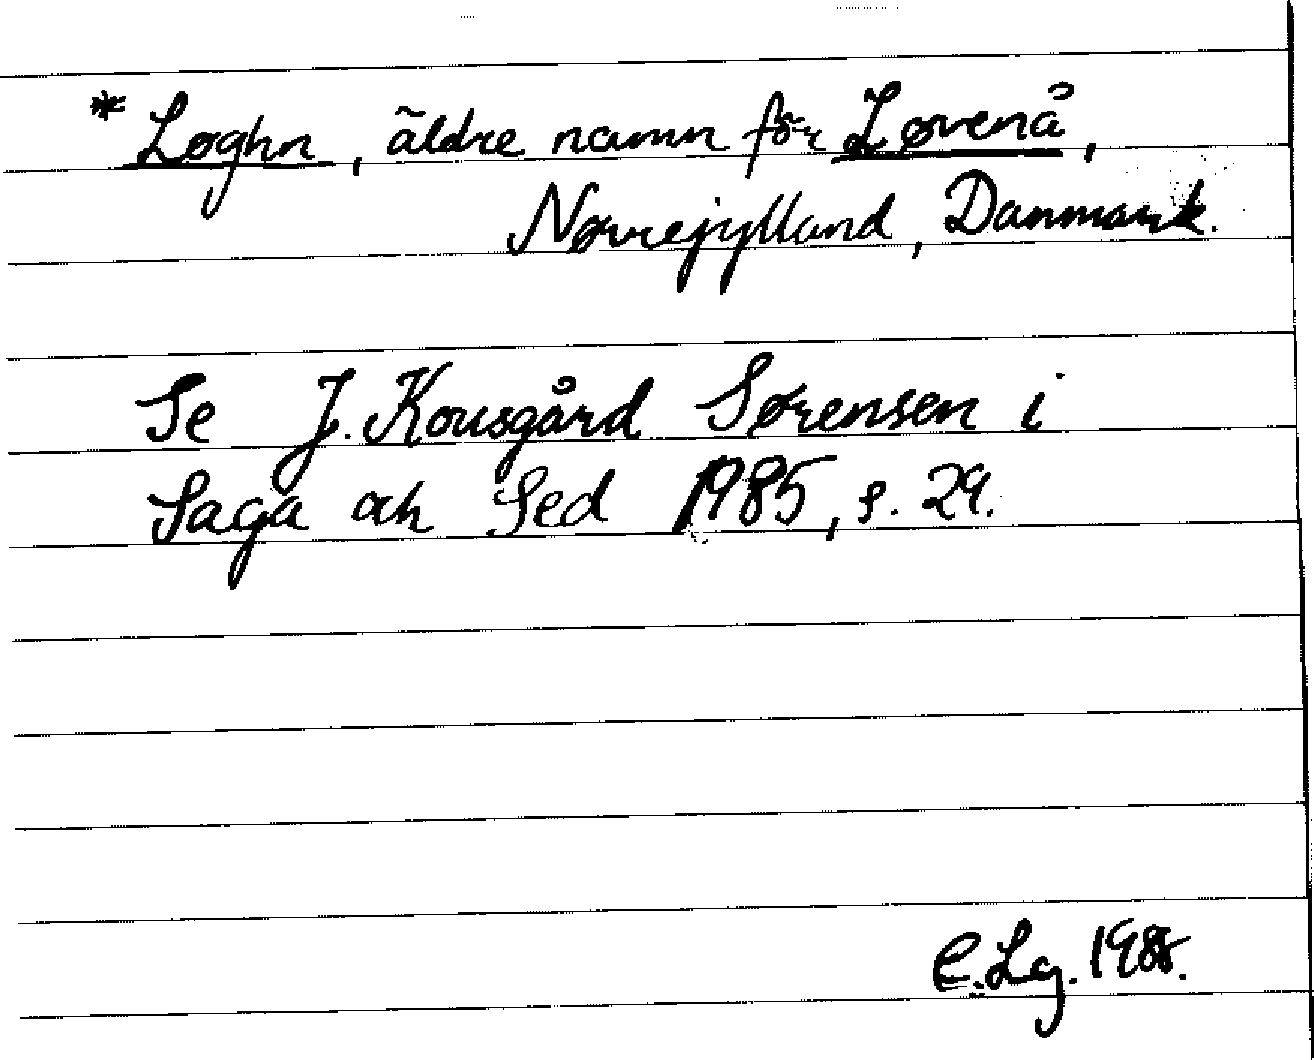 *Løghn, äldre namn för Løvenå,
Nørrejylland, Danmark.
Se J. Kousgård Sørensen i
Saga och Sed 1985, s. 29.
C. Lg. 1988.